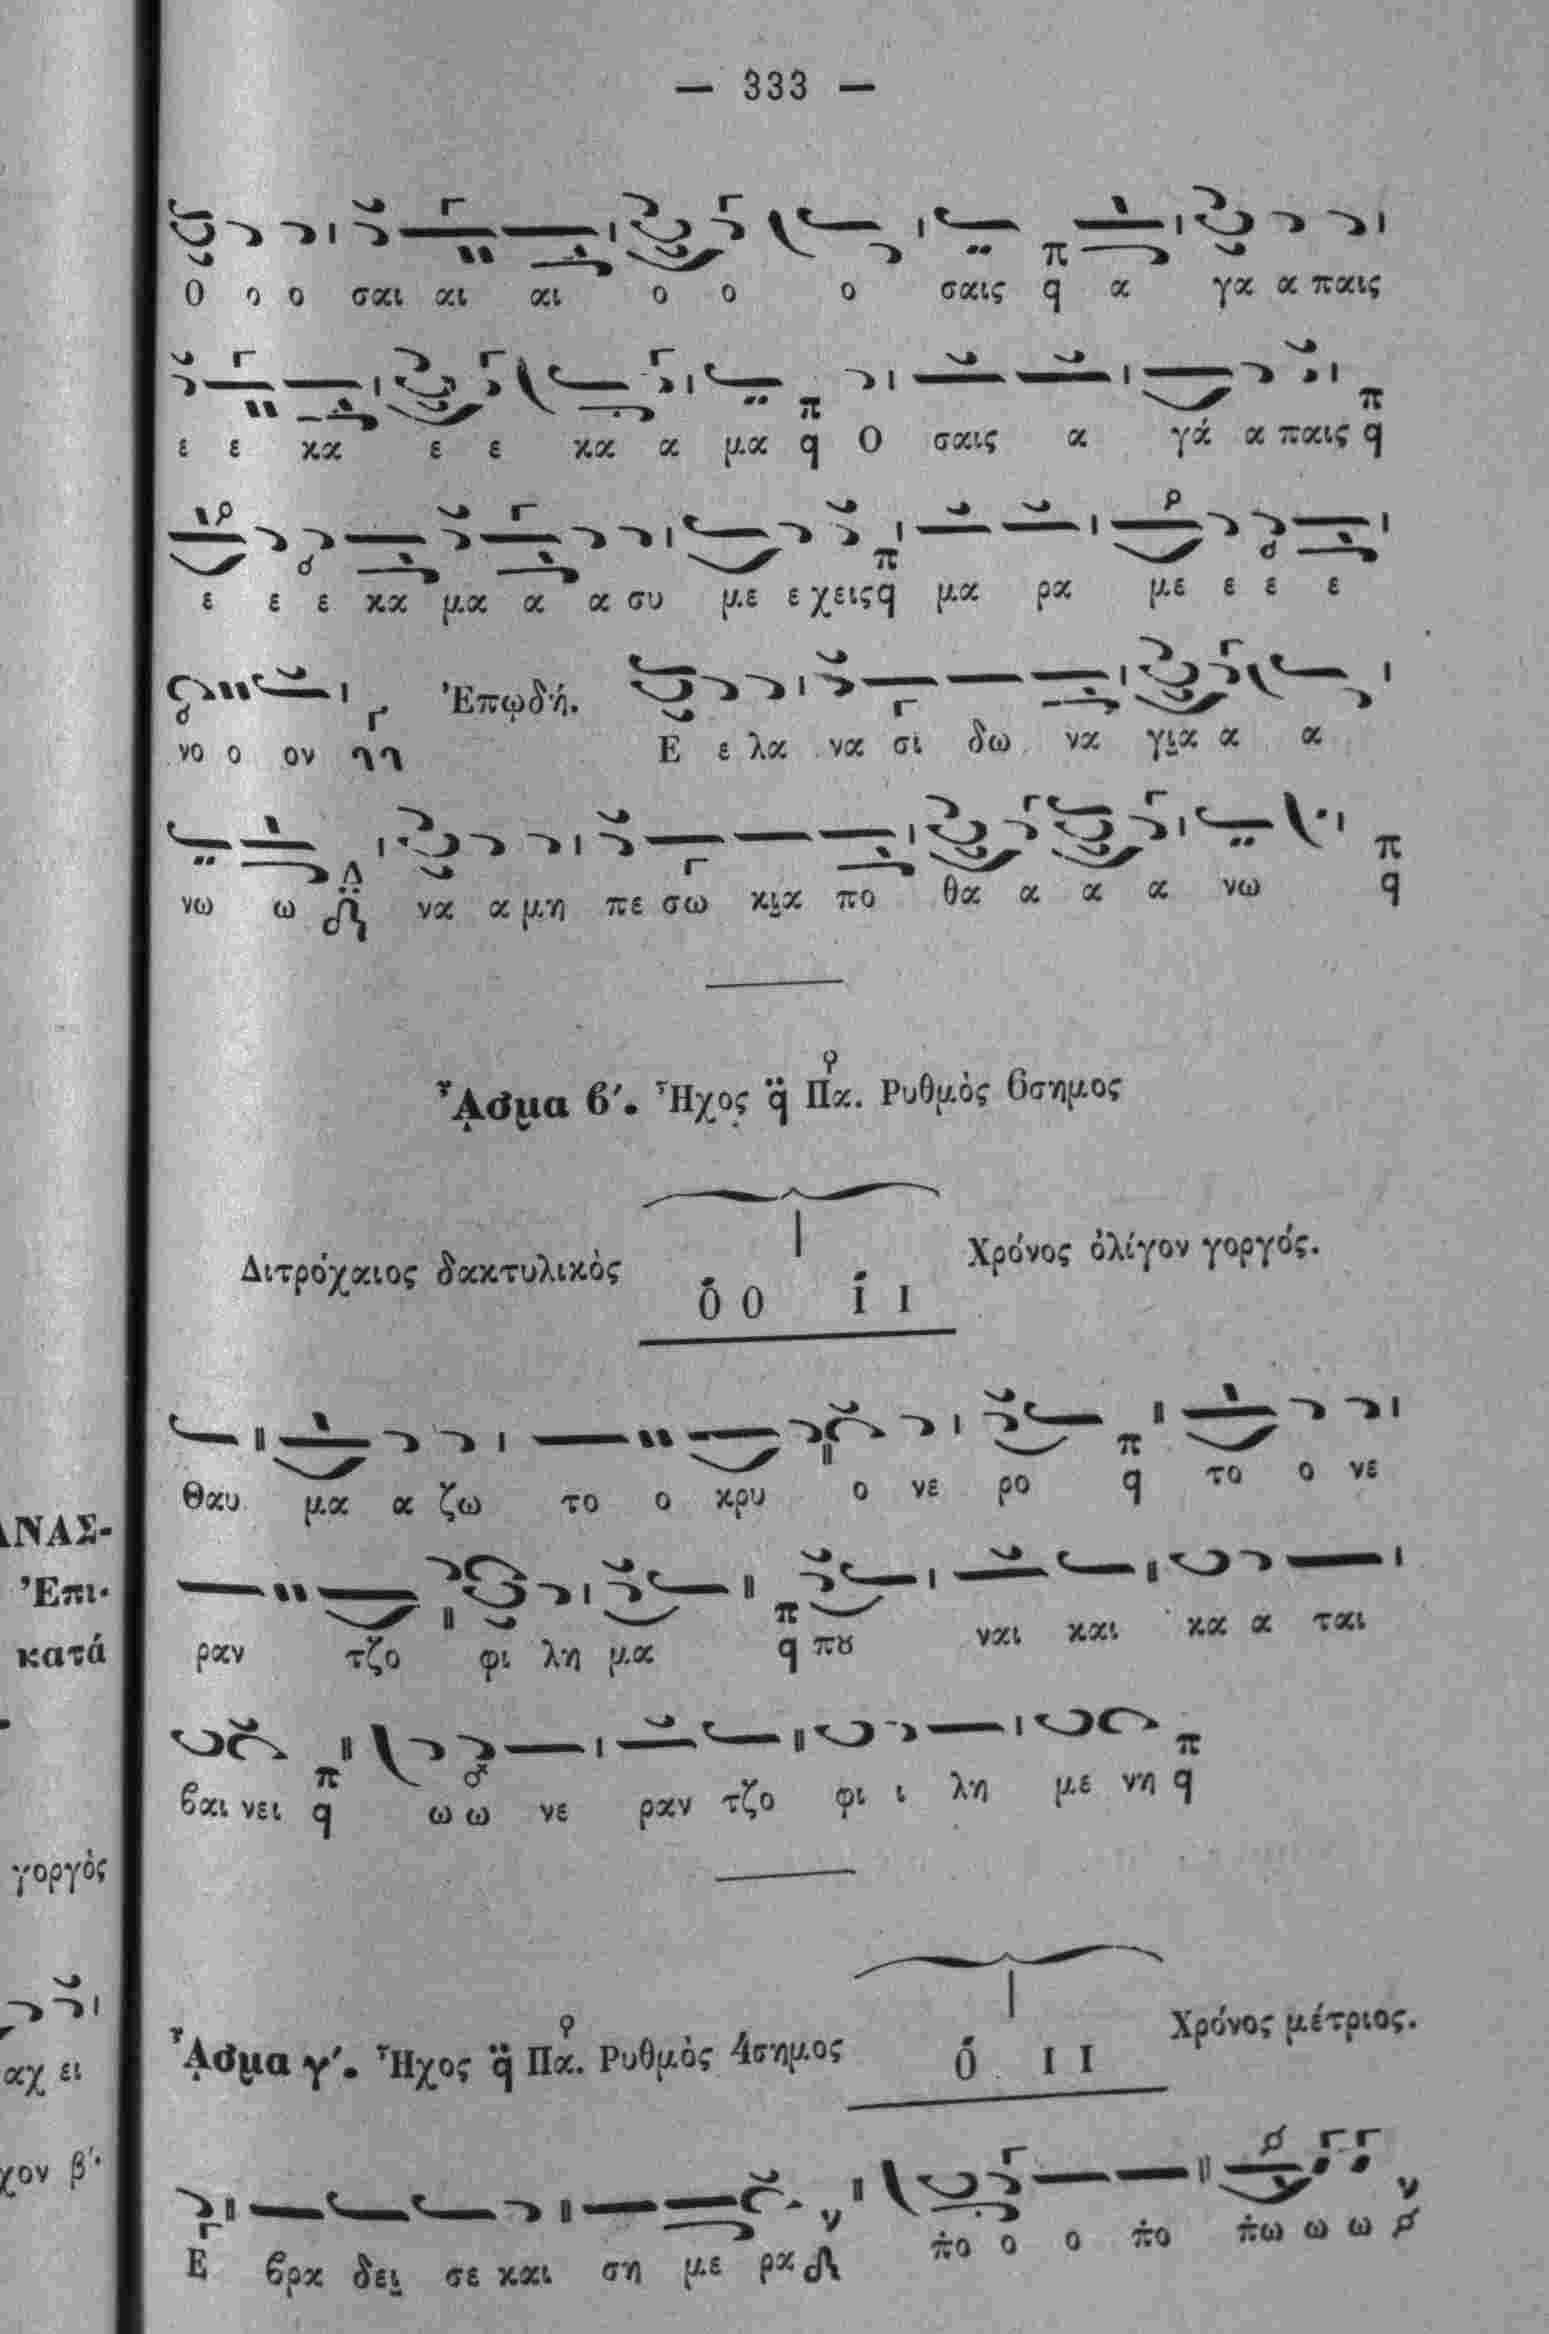 — 333 —
Ο ο ο σαι αι αι ο ο ο σαις α γα α παις
ε ε κα ε ε κα α μα Ο σαις α γά α παις
ε ε ε κα μα α α συ με ε χεις μα ρα με ε ε ε
νο ο ον Ἐπῳδή. Ε ε λα να σι δω να για α α
νω ω να α μη πε σω κια πο θα α α α νω
ᾎσμα β΄. Ἦχος Πα. Ρυθμὸς 6σημος
Διτρόχαιος δακτυλικὸς Ο Ο Ι Ι Χρόνος ὀλίγον γοργός.
Θαυ μα α ζω το ο κρυ ο νε ρο το ο νε
ραν τζο φι λη μα πȣ ναι και κα α ται
βαι νει ω ω νε ραν τζο φι ι λη με νη
ᾎσμα γ΄. Ἦχος Πα. Ρυθμὸς 4σημος Ο Ι Ι Χρόνος μέτριος.
Ε βρα δει σε και ση με ρα πο ο ο πο πω ω ω
ΑΝΑΣ-
Ἐπι-
κατά
γοργὸς
αχ ει
χον β΄.